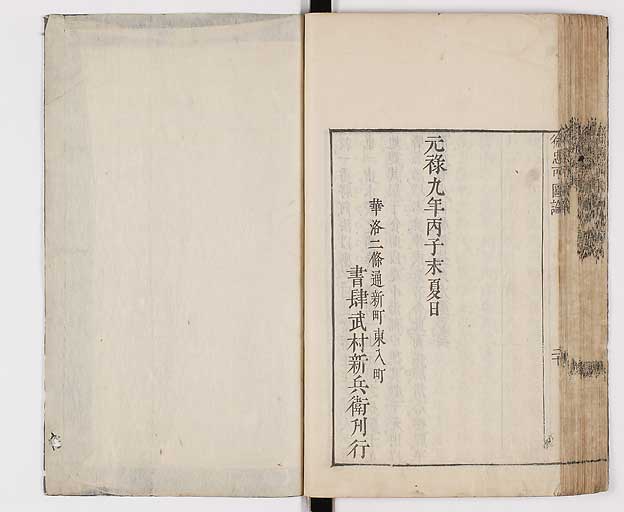 元祿九年丙子末夏日
華洛二條通新町東入町
書肆武村新兵衛刋行